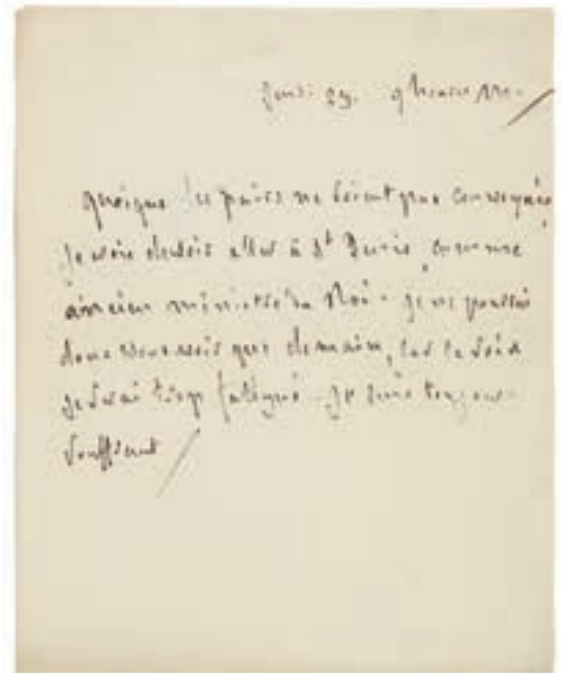 Jeudi 29. 9 heures m.
quoique les pairs ne soient pas convoqués,
je crois devoir aller à St Denis, comme
ancien ministre du Roi. je ne pourrai
donc vous voir que demain, car le soir
je serai trop fatigué. je suis toujours
souffrant